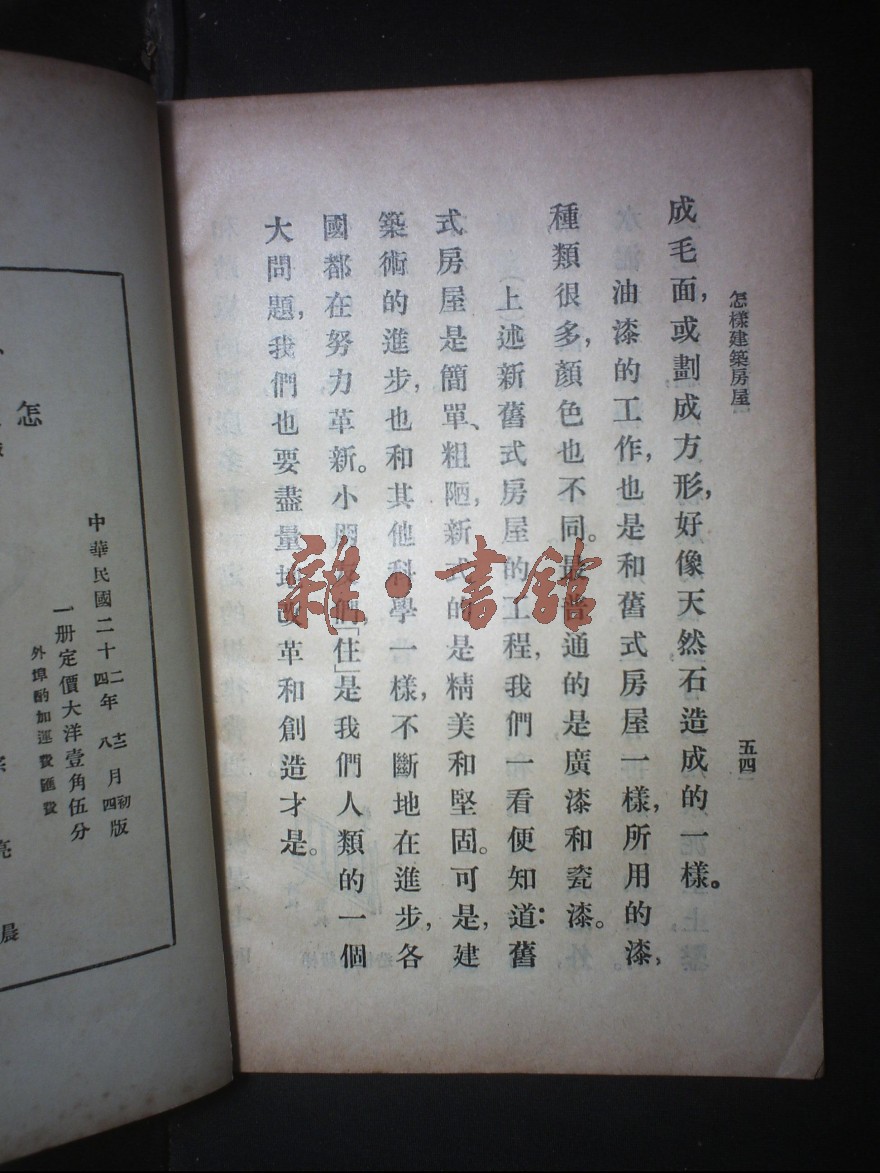 怎樣建築房屋
五四
成毛面,或劃成方形,好像天然石造成的一樣。
油漆的工作,也是和舊式房屋一樣,所用的漆,
種類很多,顏色也不同。最普通的是廣漆和瓷漆。
(上述新舊式房屋的工程,我們一看便知道:舊
式房屋是簡單、粗陋,新式的是精美和堅固。可是,建
築術的進步,也和其他科學一樣,不斷地在進步,各
國都在努力革新。小朋友們,「住」是我們人類的一個
大問題,我們也要盡量地改革和創造才是。
雜·書館
中華民國二十二年十二月初版
二十四年八月四版
一册定價大洋壹角伍分
外埠酌加運費匯費
怎
亮
晨